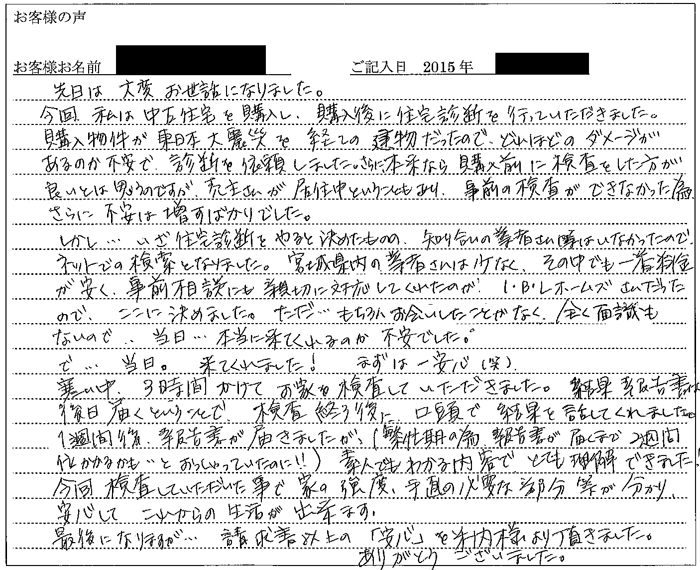 お客様の声
お客様お名前 ご記入日 2015年
先日は 大変 お世話になりました。
今回 私は 中古住宅を購入し、購入後に住宅診断を行っていただきました。
購入物件が 東日本大震災を 経ての 建物だったので、どれほどの ダメージが
あるのか不安で、診断を依頼しました。さらに本来なら 購入前に 検査をした方が
良いとは 思うのですが、売主さんが 居住中ということもあり、事前の検査が できなかった為
さらに 不安は 増すばかりでした。
しかし… いざ住宅診断を やると決めたものの、知り合いの業者さん等はいなかったので
ネットでの検索となりました。宮城県内の業者さんは少なく、その中でも一番料金
が安く、事前相談にも 親切に対応してくれたのが、I・B・Lホームズさんだった
ので、ここに決めました。ただ… もちろんお会いしたことがなく、全く面識も
ないので‥ 当日…本当に来てくれるのか 不安でした。
で… 当日。来てくれました! まずは一安心(笑)
寒い中、3時間かけて お家を検査していただきました。結果報告書は
後日届くということで、検査終了後に 口頭で 結果を話してくれました。
1週間後、報告書が届きましたが、(繁忙期の為 報告書が届くまで2週間
位かかるかも…と おっしゃっていたのに!!) 素人でもわかる内容で とても理解できました!
今回 検査していただいた事で 家の強度、手直の必要な部分 等が分かり、
安心して これからの生活が 出来ます。
最後になりますが… 請求書以上の 「安心」を 様より頂きました。
ありがとう ございました。